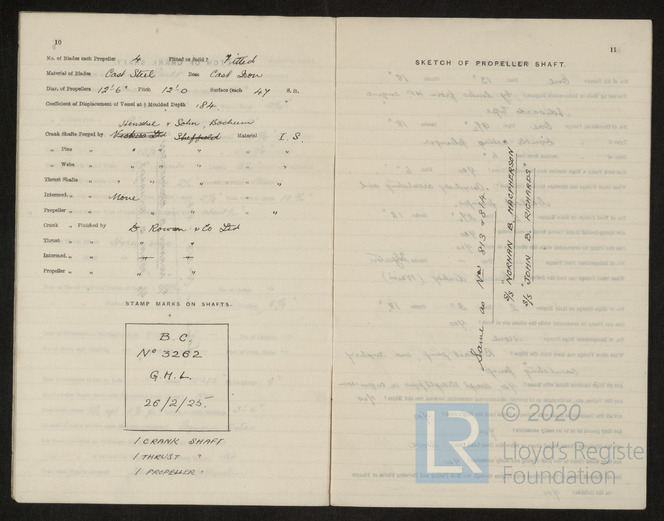 10
No. of Blades each Propeller 4 Fitted or Solid? Fitted
Material of Blades Cast Steel Boss Cast Iron
Diar. of Propellers 12'.6" Pitch 12'.0 Surface (each 47 S. ft.
Coefficient of Displacement of Vessel at ¾ Moulded Depth .784
Henschel & Sohn, Bochum
Crank Shafts Forged by Vickers Ltd Sheffield Material I. S.
„ Pins „ „ „ „ „
„ Webs „ „ „ „ „
Thrust Shafts „ „ „ „ „
Intermed. „ „ None
Propeller „ „ „ „ „
Crank „ Finished by D. Rowan & Co Ltd
Thrust „ „ „
Intermed. „ „
Propeller „ „ „
STAMP MARKS ON SHAFTS.
B.C.
No 3262
G.H.L.
26/2/25.
1 CRANK SHAFT
1 THRUST "
1 PROPELLER "
11
SKETCH OF PROPELLER SHAFT.
Same as Nos 813 & 814
S/S "NORMAN B. MACPHERSON
S/S "JOHN B. RICHARDS"
© 2020
LR
Lloyd's Register
Foundation